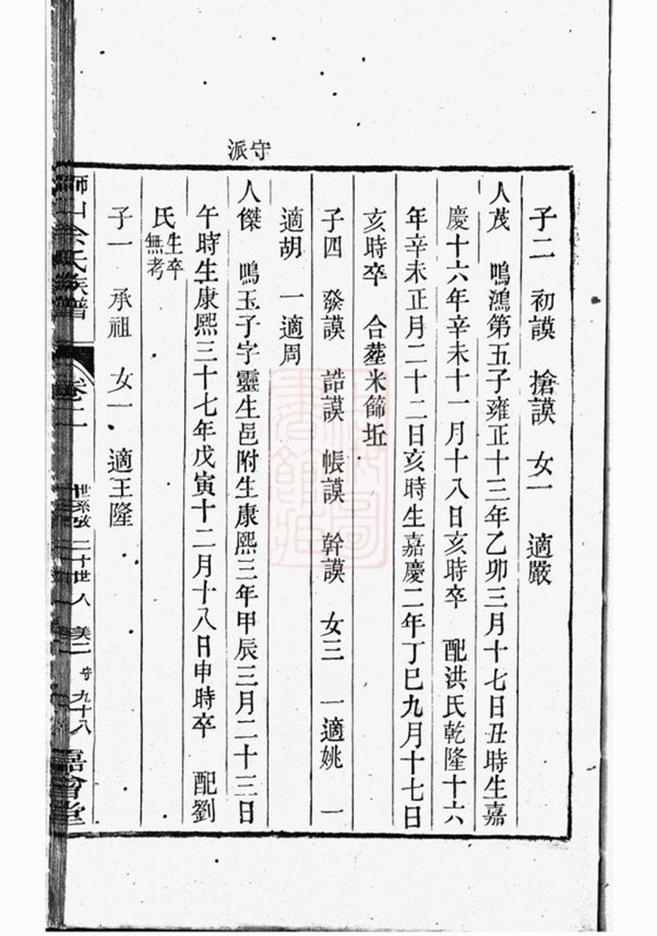 子二 初謨 搶謨 女一 適嚴
人茂 鳴鴻第五子雍正十三年乙卯三月十七日丑時生嘉
慶十六年辛未十一月十八日亥時卒 配洪氏乾隆十六
年辛未正月二十二日亥時生嘉慶二年丁巳九月十七日
亥時卒 合塟米篩坵
子四 發謨 誥謨 帳謨 幹謨 女三 一適姚 一
適胡 一適周
守派
人傑 鳴玉子字靈生邑附生康熙三年甲辰三月二十三日
午時生康熙三十七年戊寅十二月十八日申時卒 配劉
氏生卒無考
子一 承祖 女一 適王隆
山余氏族譜 卷二 世系攷 二十世人 美二 守 九十八 嘉會堂